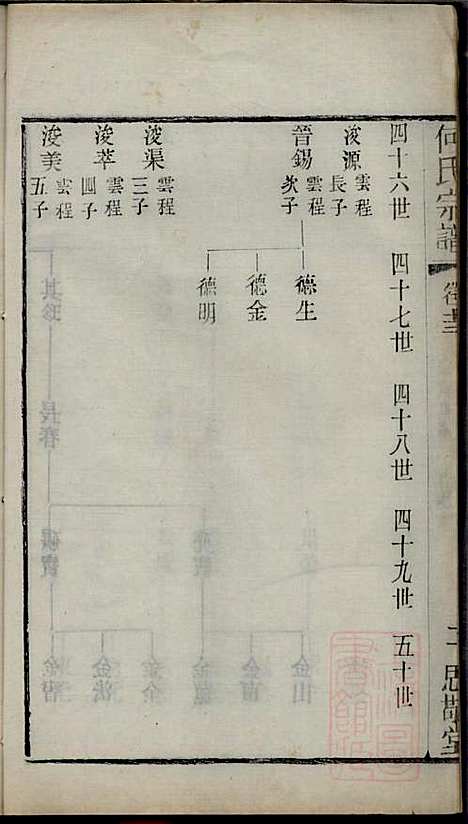 何氏宗譜
思敬堂
四十六世 四十七世 四十八世 四十九世 五十世
浚源 雲程長子
晉錫 雲程次子
德生
德金
德明
浚渠 雲程三子
浚萃 雲程四子
浚美 雲程五子